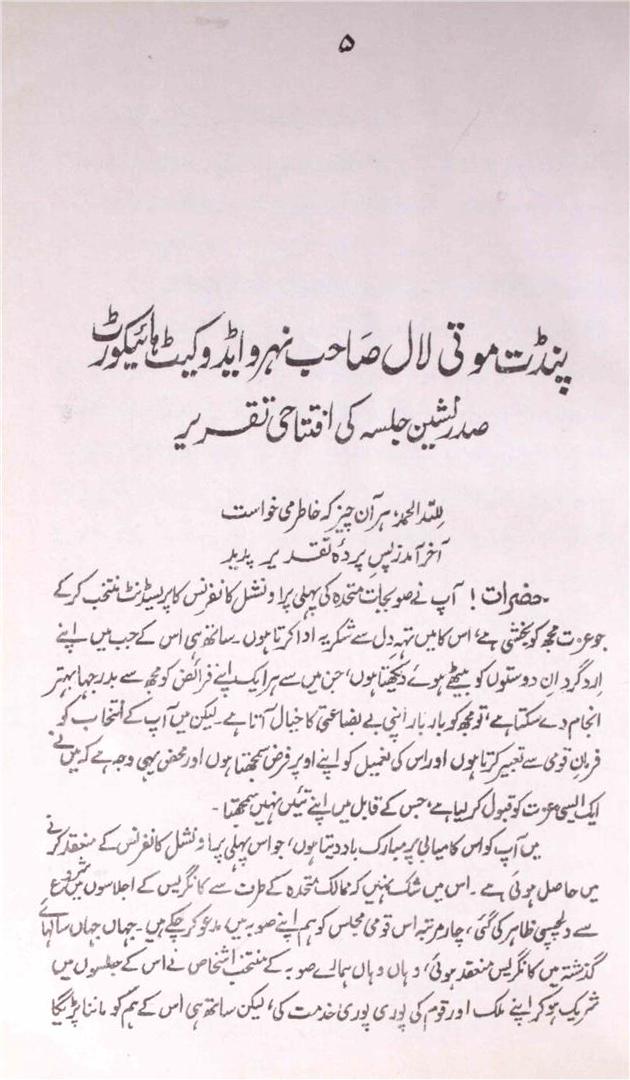 ۵
پنڈت موتی لال صاحب نہرو ایڈوکیٹ ہائیکورٹ
صدر نشین جلسہ کی افتتاحی تقریر
للہ الحمد ہر آن چیز کہ خاطر می خواست
آخر آمد ز پسِ پردۂ تقدیر پدید
حضرات! آپ نے صوبجات متحدہ کی پہلی پراونشل کانفرنس کا پریسیڈنٹ منتخب کرکے
جو عزت مجھ کو بخشی ہے، اس کا میں تہہ دل سے شکریہ ادا کرتا ہوں۔ ساتھ ہی اس کے جب میں اپنے
اردگرد ان دوستوں کو بیٹھے ہوئے دیکھتا ہوں، جن میں سے ہر ایک اپنے فرائض کو مجھ سے بدرجہا بہتر
انجام دے سکتا ہے، تو مجھ کو بار بار اپنی بے بضاعتی کا خیال آتا ہے۔ لیکن میں آپ کے انتخاب کو
فرمانِ قومی سے تعبیر کرتا ہوں اور اس کی تعمیل کو اپنے اوپر فرض سمجھتا ہوں اور محض یہی وجہ ہے کہ میں نے
ایک ایسی عزت کو قبول کر لیا ہے، جس کے قابل میں اپنے تئیں نہیں سمجھتا۔
میں آپ کو اس کامیابی پر مبارک باد دیتا ہوں، جو اس پہلی پراونشل کانفرنس کے منعقد کرنے
میں حاصل ہوئی ہے۔ اس میں شک نہیں کہ ممالک متحدہ کے طرف سے کانگریس کے اجلاسوں میں شروع
سے دلچسپی ظاہر کی گئی، چار مرتبہ اس قومی مجلس کو ہم اپنے صوبہ میں مدعو کر چکے ہیں۔ جہاں جہاں سالہائے
گذشتہ میں کانگریس منعقد ہوئی، وہاں وہاں ہمارے صوبہ کے منتخب اشخاص نے اس کے جلسوں میں
شریک ہو کر اپنے ملک اور قوم کی پوری پوری خدمت کی، لیکن ساتھ ہی اس کے ہم کو ماننا پڑیگا